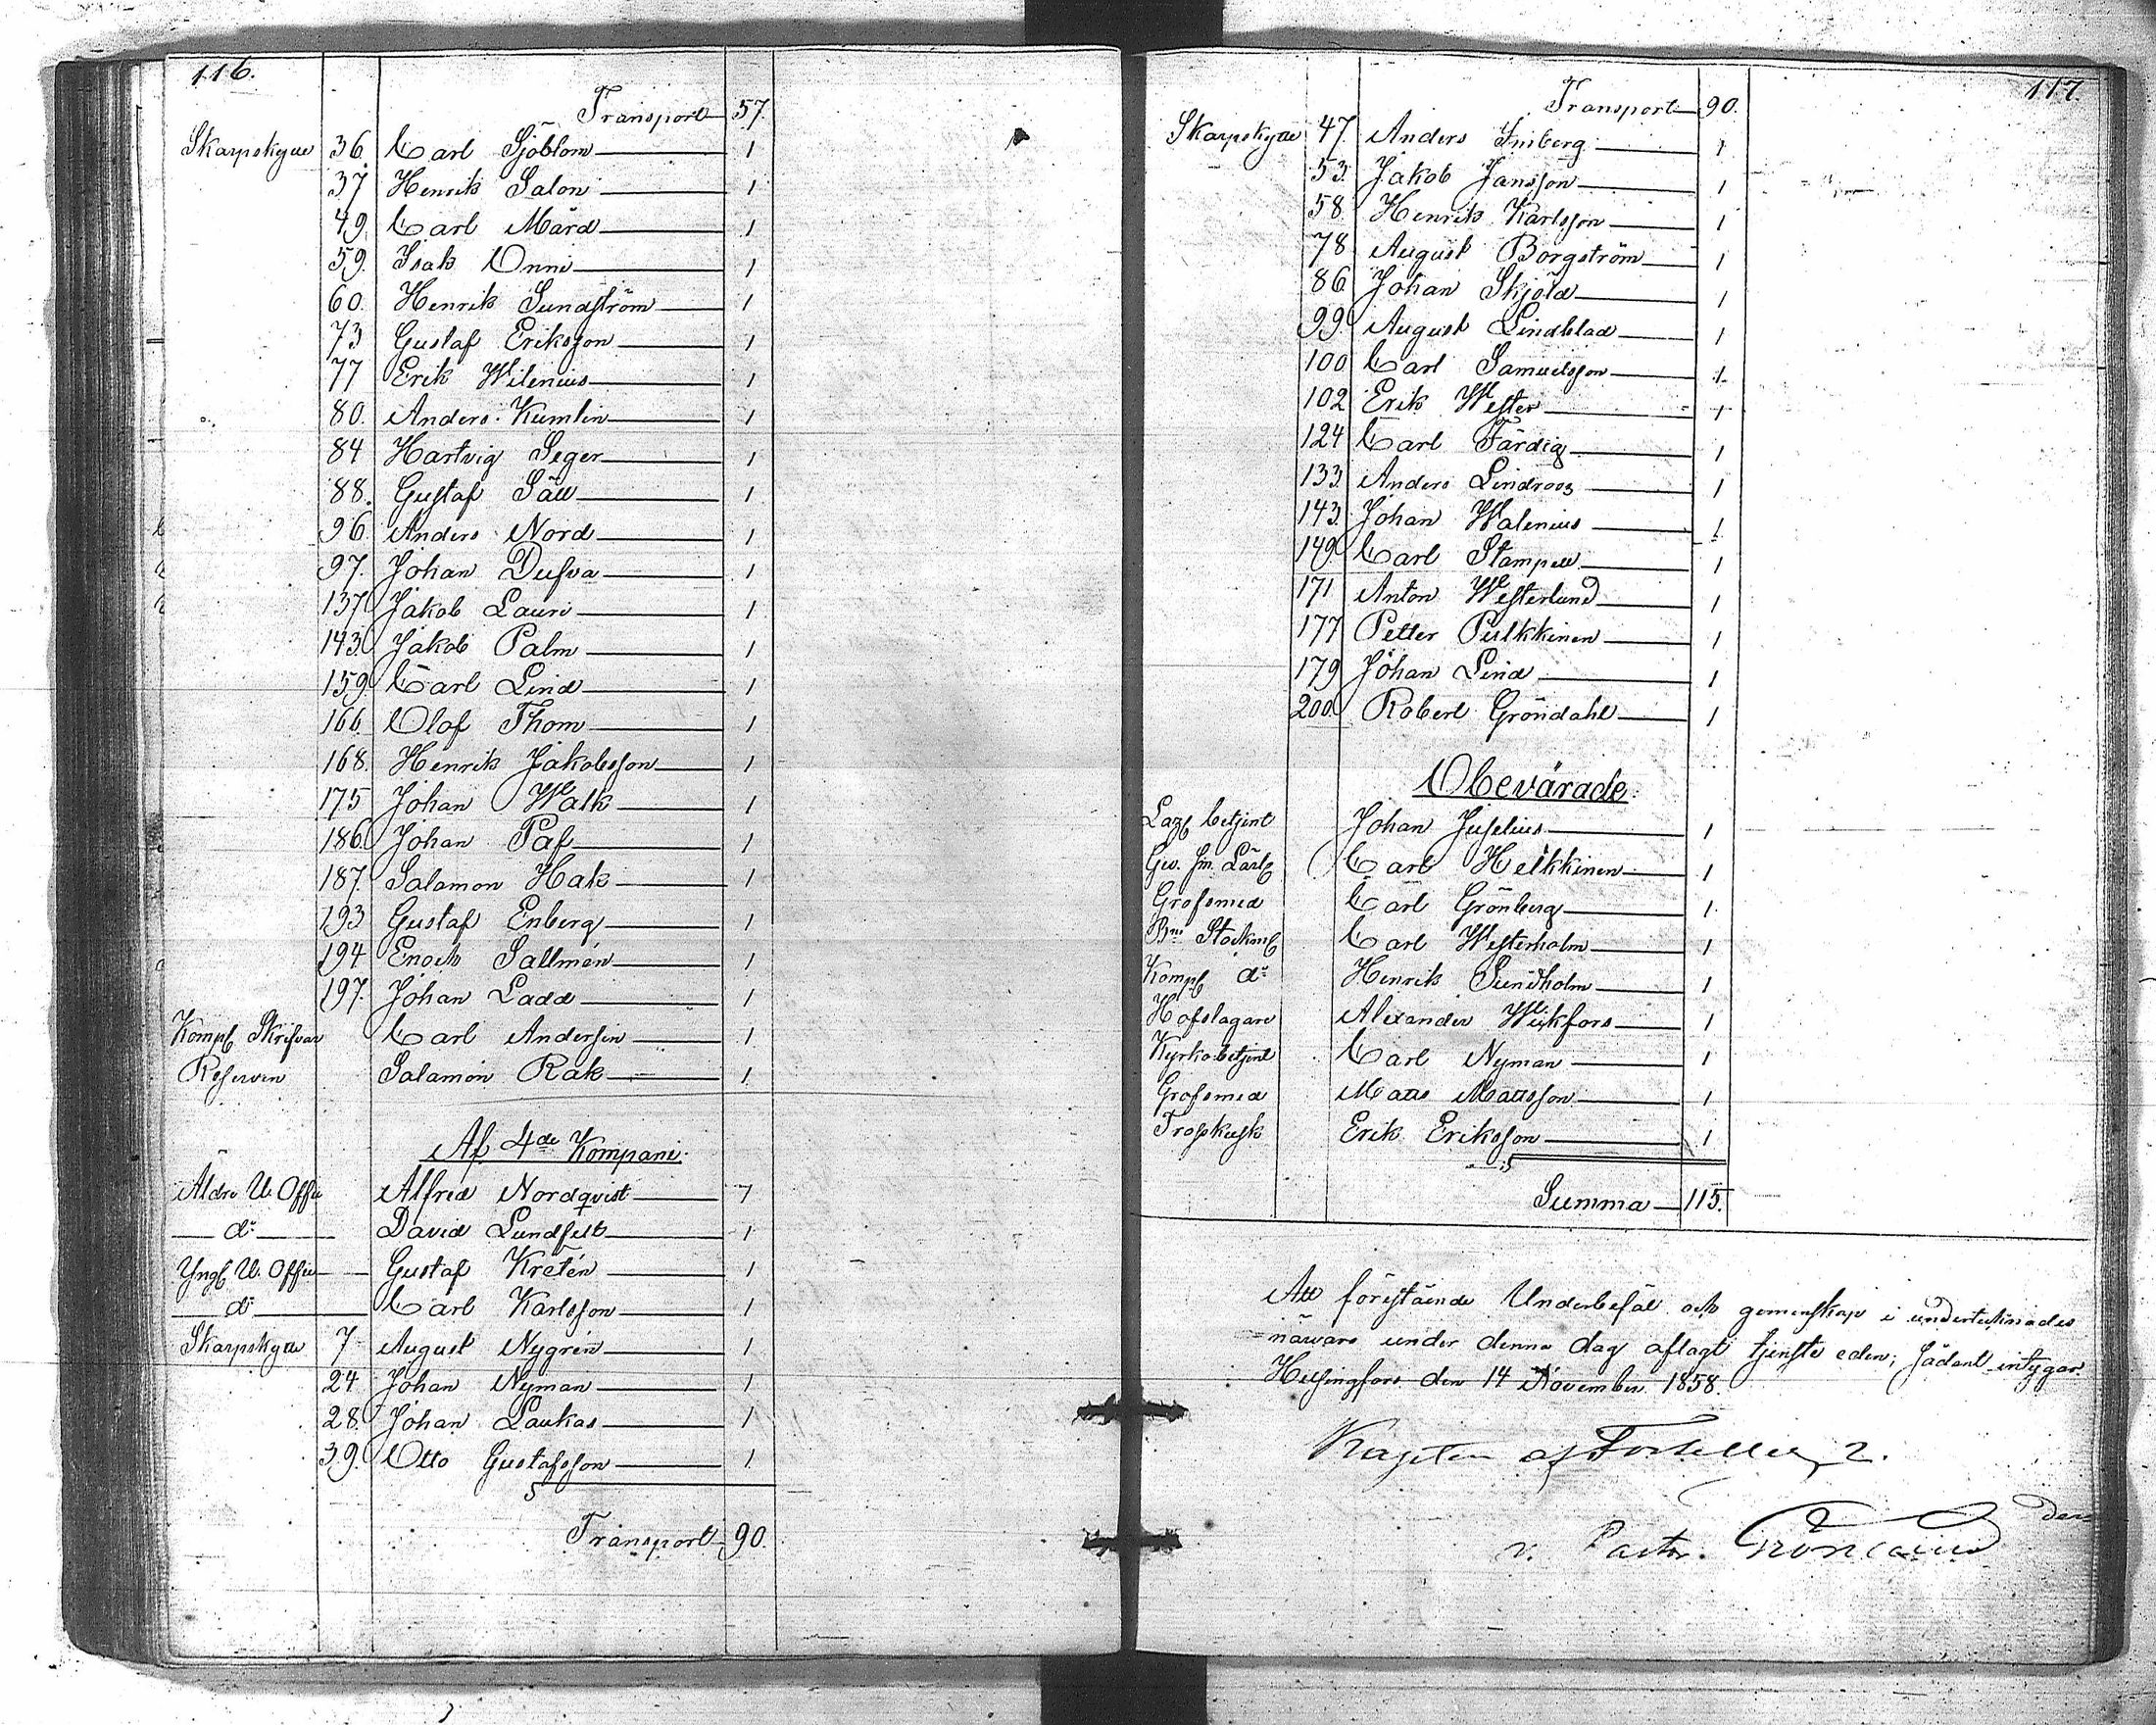 116.
Transport 57.
Skarpskytte 36. Carl Sjöblom 1
37 Henrik Salon 1
49. Carl Mård 1
59. Isak Onni 1
60. Henrik Sundström 1
73 Gustaf Eriksson 1
77 Erik Wilenius 1
80. Anders Kumlin 1
84 Hartvig Seger 1
88. Gustaf Säll 1
96. Anders Nord 1
97. Johan Dufva 1
137 Jakob Lauri 1
143. Jakob Palm 1
159. Carl Lind 1
166. Olof Thom 1
168. Henrik Jakobsson 1
175 Johan Walk 1
186. Johan Paf 1
187. Salamon Hak 1
193 Gustaf Enberg 1
194 Enoch Sallmén 1
197. Johan Ladd 1
Komp Skrifvar Carl Andersin 1
Reserven Salamon Rak 1
Af 4de Kompani
Äldre U. Offic Alfred Nordqvist 1
do David Lundfelt 1
Yng U. Offic Gustaf Kretén 1
do Carl Karlsson 1
Skarpskytte 7 August Nygrén 1
24 Johan Nyman 1
28. Johan Laukas 1
39. Otto Gustafsson 1
Transport 90.
117.
Transport 90.
Skarpskytte 47. Anders Imberg 1
53. Jakob Jansson 1
58 Henrik Karlsson 1
78 August Borgström 1
86 Johan Skjöld 1
99 August Lindblad 1
100 Carl Samuelsson 1
102 Erik Wester 1
124 Carl Färdig 1
133 Anders Lindroos 1
143. Johan Walenius 1
149 Carl Stampell 1
171 Anton Westerlund 1
177 Petter Pulkkinen 1
179 Johan Lind 1
200. Robert Gröndahl 1
Obevärade.
Laz betjent Johan Juselius 1
Carl Helkkinen 1
Grofsmed Carl Grönberg 1
Carl Westerholm 1
Komp do Henrik Sundholm 1
Hofslagare Alexander Wikfors 1
Kyrko betjent Carl Nyman 1
Grofsmed Matts Mattsson 1
Trosskusk Erik Eriksson 1
Summa 115.
Att förestående Underbefäl och gemenskap i undertecknades
närvaro under denna dag aflagt tjenste eden; sådant intygar
Helsingfors den 14 November 1858.
Kapten af
v. Pastor.